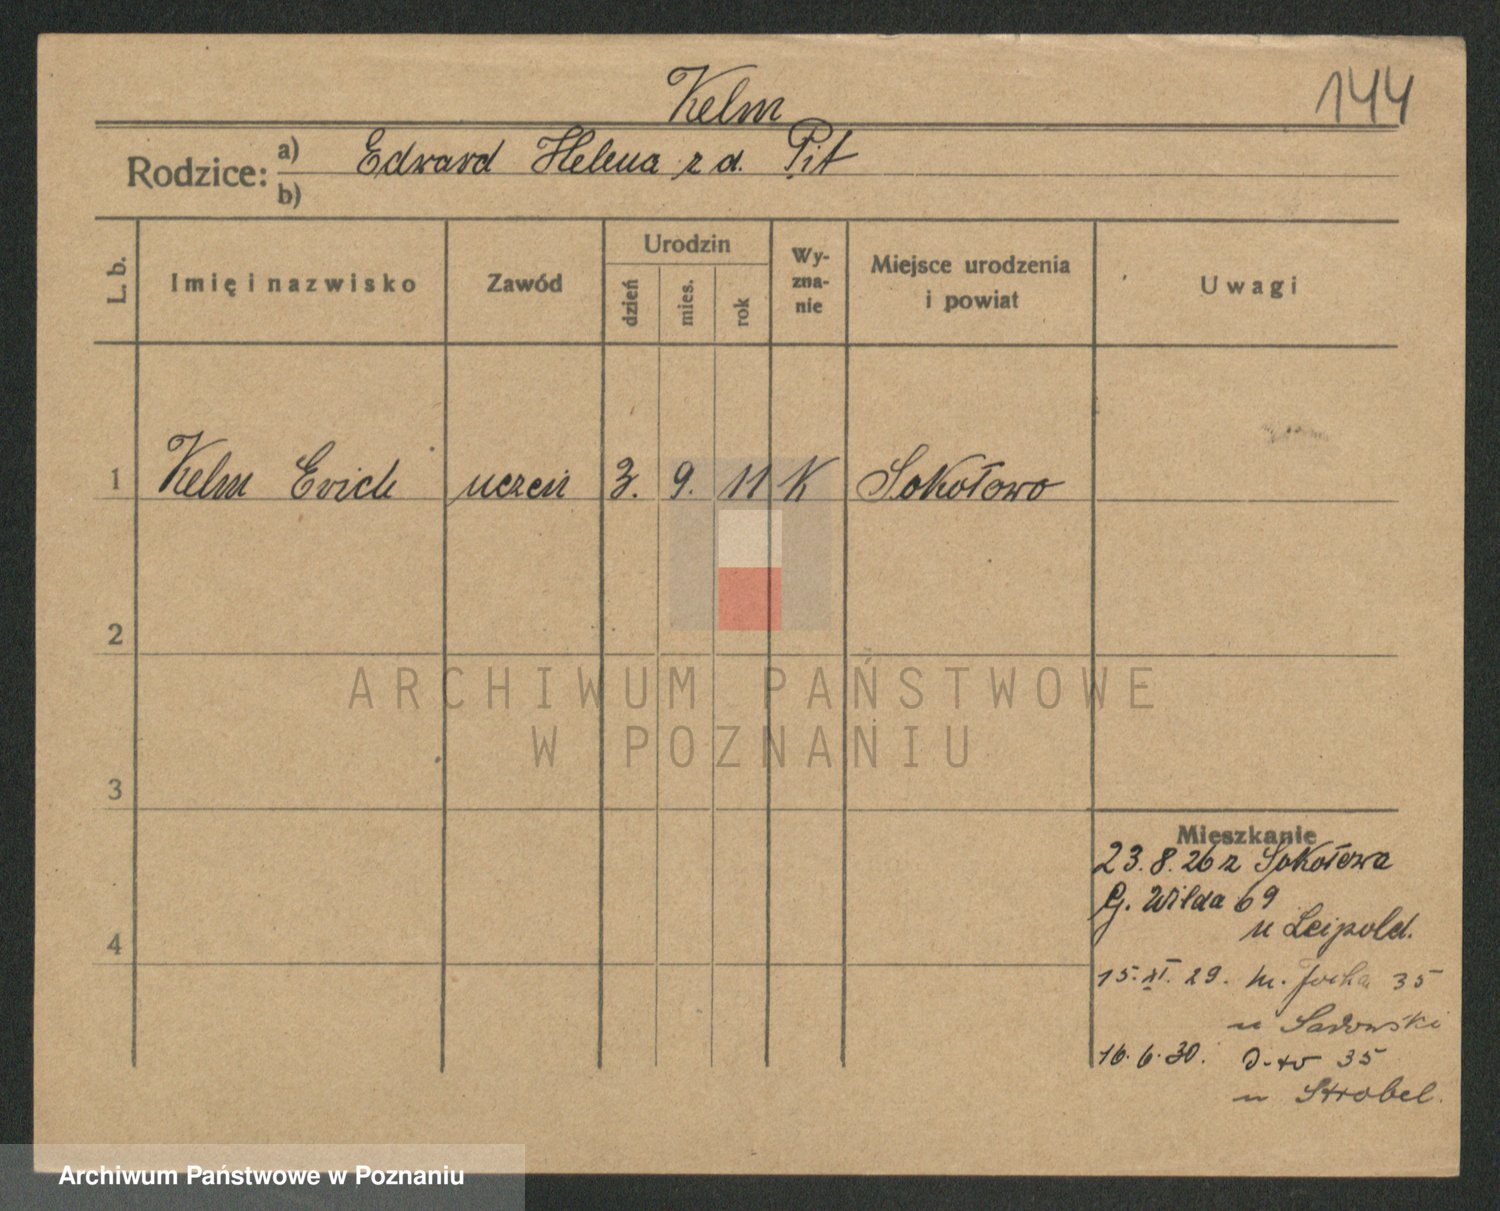 Kelm
144
Rodzice: a) Edward Helena z d. Pit
b)
L. b. Imię i nazwisko Zawód Urodzin dzień mies. rok Wy-zna-nie Miejsce urodzenia i powiat Uwagi
1 Kelm Erich uczeń 3. 9. 11 K Sokołowo
2
ARCHIWUM PAŃSTWOWE
W POZNANIU
3
Mieszkanie
23.8.26 z Sokołowa
G. Wilda 69
u Leipold.
4
15.XI.29. m. Focha 35
u Sadowski
16.6.30. d-to 35
u Strobel.
Archiwum Państwowe w Poznaniu